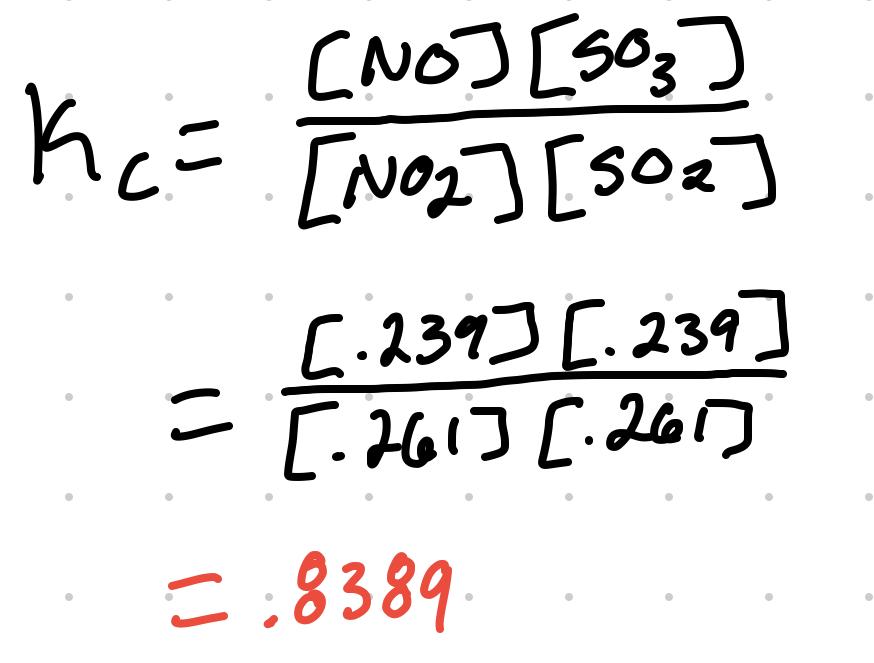 K_c = [NO][SO₃]
[NO₂][SO₂]
= [.239][.239]
[.261][.261]
= .8389